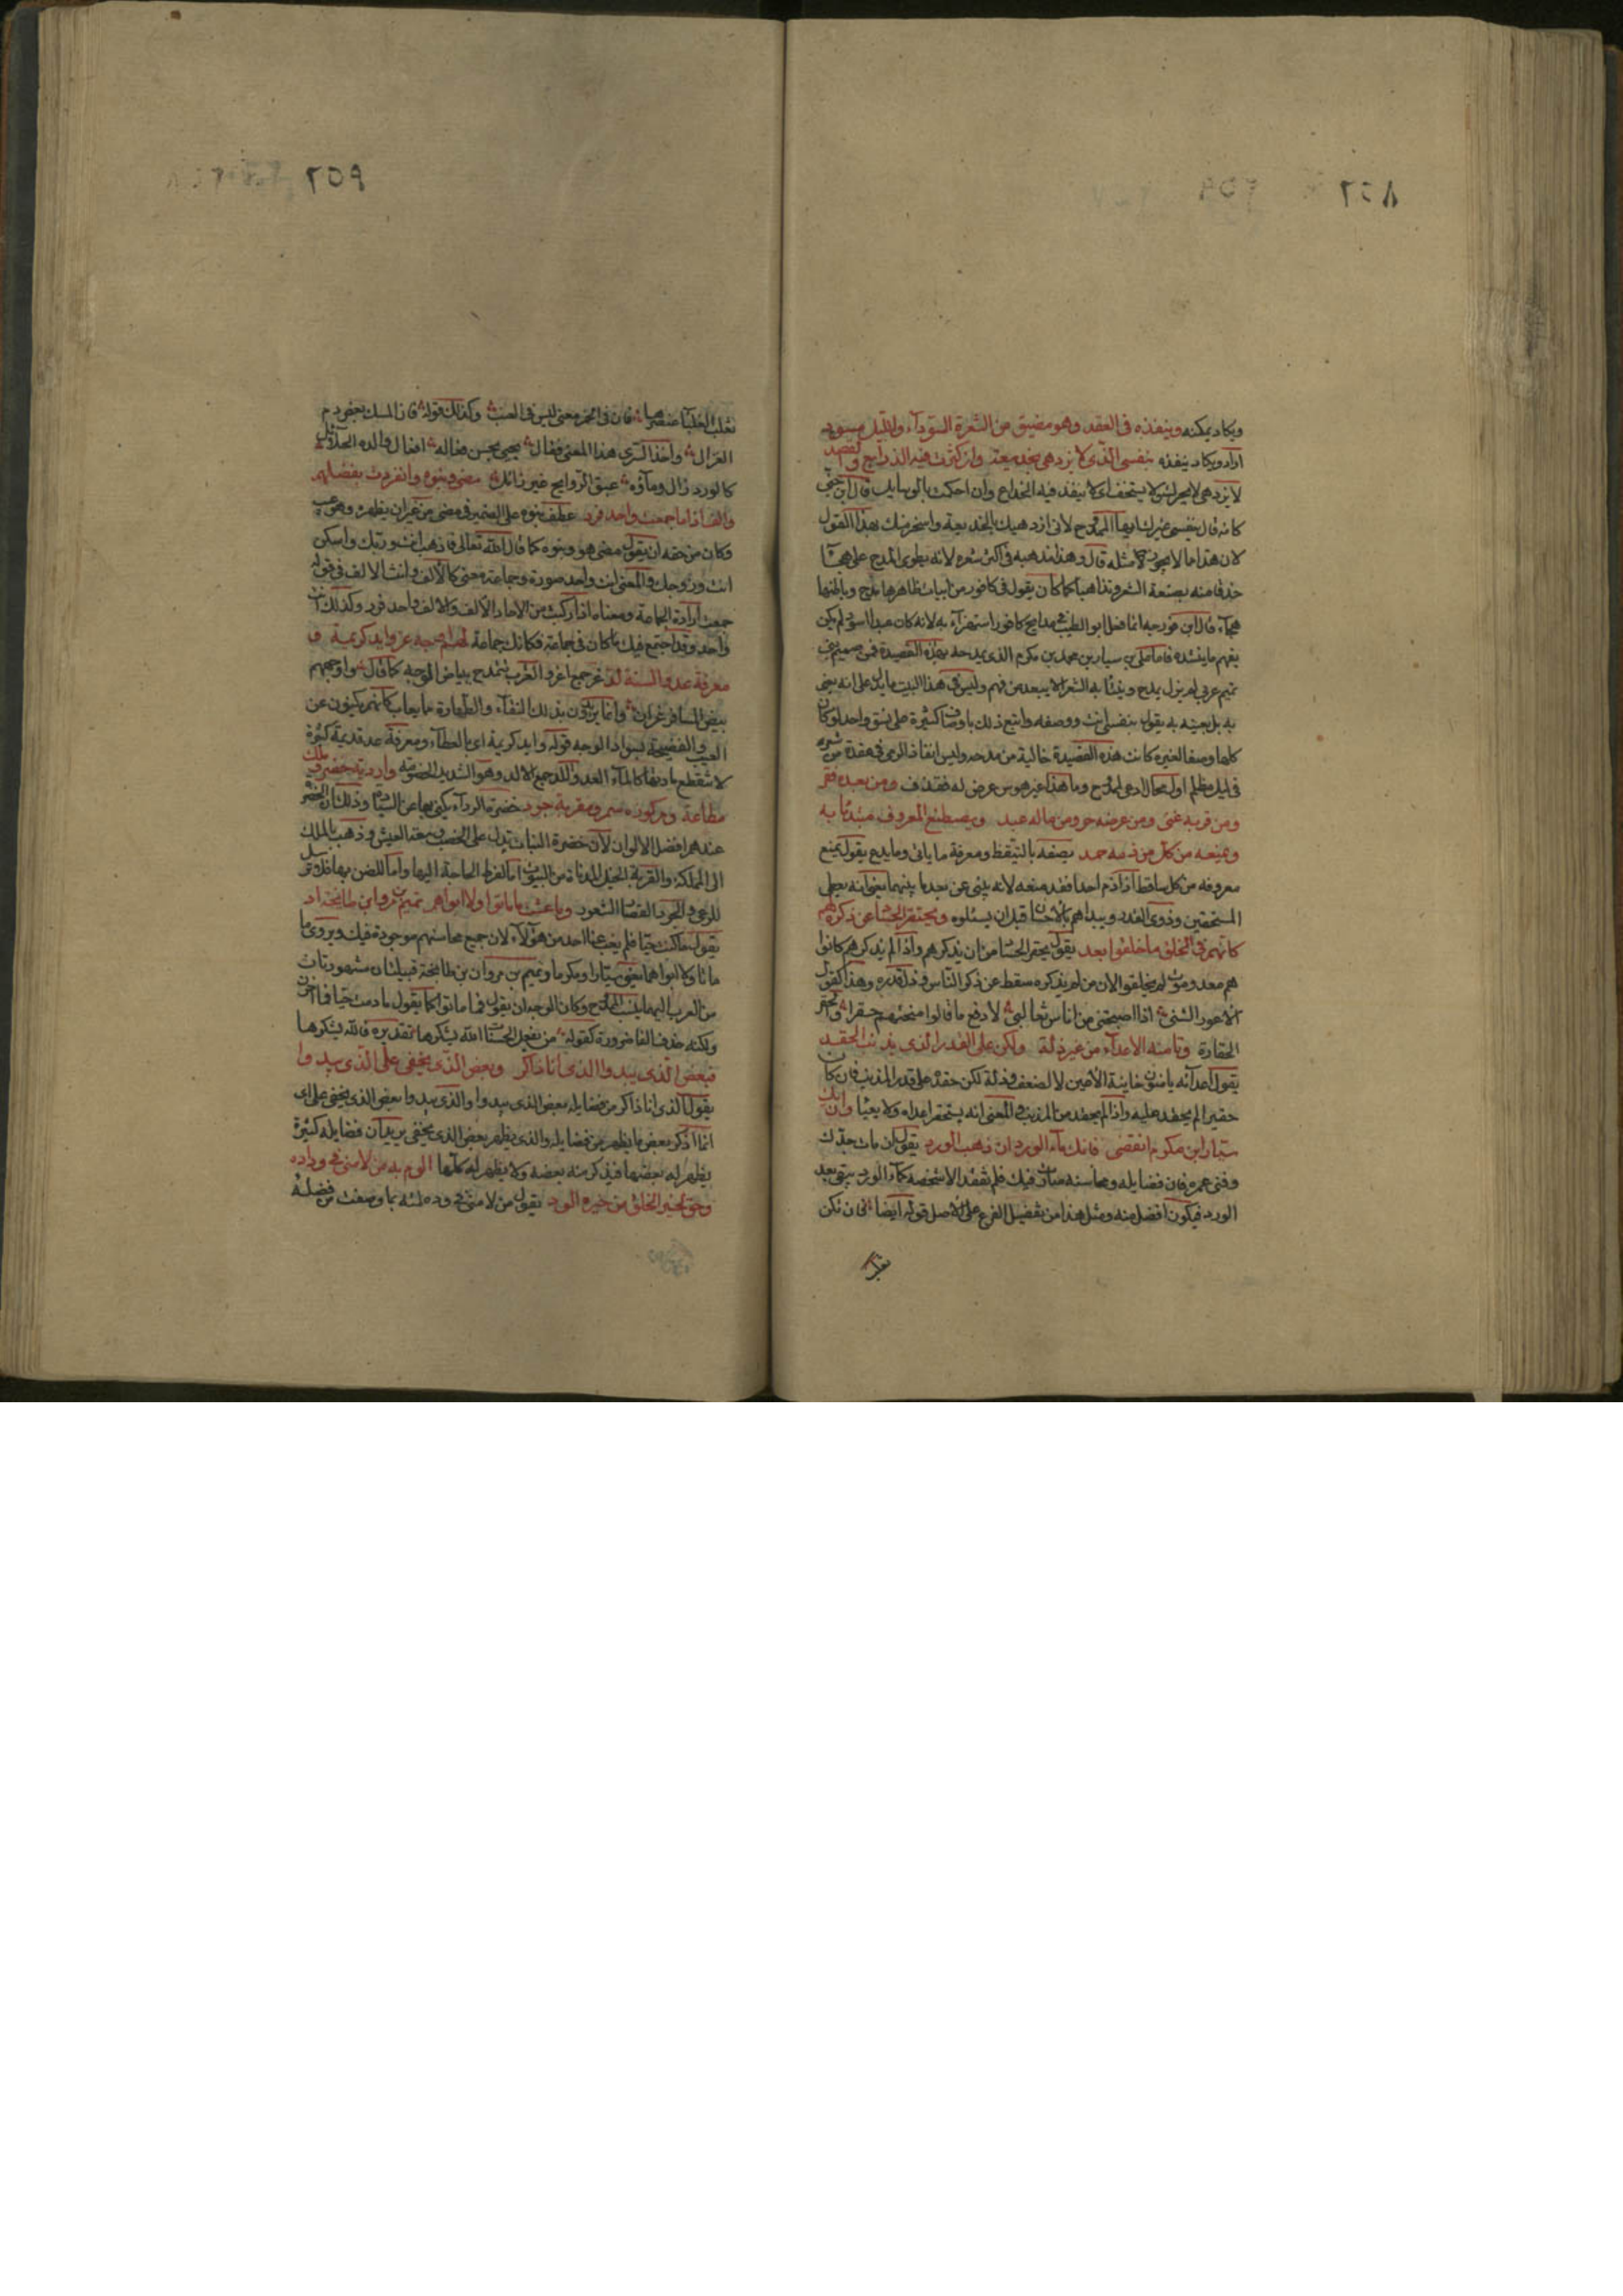 ٢٥٨
ويكاد يمكنه وينفذه في العقد وهو مضيق من الشعرة السوداء والليل مسود
اراد ويكاد ينفذه بنفسي الذي لا يزدهى بخديعة وان كثرت فيه الذرايع والقصد
لا يزدهى لا يحرك ولا يستخف اي لا ينفذ فيه الخداع وان احكمت بالوسايل قال ابن جني
كانه قال بنفسي غيرك ايها الممدوح لاني ازدهيك بالخديعة واسخر منك بهذا القول
لان هذا مما لا يجوز مثله قال وهذا مذهبه في اكثر شعره لانه يطوى المدح على هجاء
حذقا منه بصنعة الشعر وتداهيا كما كان يقول في كافور من ابيات ظاهرها مدح وباطنها
هجاء قال ابن فورجه انما فعل ابو الطيب في مدايح كافور استهزاء به لانه كان عبدا اسود لم يكن
يفهم ما ينشده فاما علي بن سيار بن محمد بن مكرم الذي يمدحه بهذه القصيدة فمن صميم بني
تميم عربي لم يزل يمدح وينتابه الشعراء لا يبعد من فهم وليس في هذا البيت ما يدل على انه يعني
به بل يعنيه به يقول بنفسي انت ووصفه واتبع ذلك باوصاف كثيرة على نسق واحد لو كان
كلها وصفا لغيره كانت هذه القصيدة خالية من مدحه وليس انفاذ الرمى في عقدة من شعره
في ليل مظلم اول محال ادعى لممدوح وما هذا غير هوس عرض له فقذف ومن بعده فقر
ومن قربه غنى ومن عرضه حر ومن ماله عبد ويصطنع المعروف مبتدئا به
ويمنعه من كل من ذمه حمد يصفه بالتيقظ ومعرفة ما ياتي وما يدع يقول يمنع
معروفه من كل ساقط اذا ذم احدا فقد مدحه لانه ينبئ عن بعد ما بينهما يعني انه يعطي
المستحقين وذوي القدر ويبداهم بالاحسان قبل ان يسئلوه ويحتقر الحساد عن ذكره لهم
كانهم في الخلق ما خلقوا بعد يقول يحقر الحساد من ان يذكرهم واذا لم يذكرهم كانوا
هم معدومون لم يخلقوا لان من لم يذكره سقط عن ذكر الناس وذل قدره وهذا كقول
الاعور الشني اذا صبحتني من اناس ثعالب لادفع ما قالوا منحتهم حقرا وتحقر
الحقارة وتامنه الاعداء من غير ذلة ولكن على القدر الذي يذنب الحقد
يقول اعداؤه يامنون خاينة الاعين لا لضعف وذلة لكن حقده على قدر المذنب فان كان
حقيرا لم يحقد عليه واذا لم يحقد من المذنب فالمعنى انه يستحقر اعداءه ولا يعبأ وان يك
سيار ابن مكرم انقضى فانك ماء الورد ان ذهب الورد يقول ان مات جدك
وفنى عمره فان فضايله ومحاسنه صارت فيك فلم نفقد الا شخصه كماء الورد يبقى بعد
الورد فيكون افضل منه ومثل هذا من تفضيل الفرع على الاصل قوله ايضا فان تكن
تغلب
٢٥٩
تغلب الغلبا عنصرها فان في الخمر معنى ليس في العنب وكذلك قوله فان المسك بعض دم
الغزال واخذ السري هذا المعنى فقال يحيى بحسن فعاله افعال والده الحلاحل
كالورد زال وماؤه عبق الروايح غير زائل مضى وبنوه وانفردت بفضلهم
والف اذا ما جمعت واحد فرد عطف بنوه على الضمير في مضى من غير ان يظهره وهو عيب
وكان من حقه ان يقول مضى هو وبنوه كما قال الله تعالى فاذهب انت وربك واسكن
انت وزوجك والمعنى انت واحد صورة وجماعة معنى كالالف وانث الالف في قوله
جمعت ارادة الجماعة ومعناه اذا ركبت من الاحاد الالف والالف واحد فرد وكذلك انت
واحد وقد اجتمع فيك ما كان في جماعة فكانك جماعة لهم اوجه غر وايد كريمة و
معرفة عد والسنة لد غر جمع اغر والعرب تتمدح ببياض الوجه كما قال واوجههم
بيض المسافر غران وانما يريدون بذلك النقاء والطهارة مما يعاب كانهم يكنون عن
العيب والفضيحة بسواد الوجه قوله وايد كريمة اي بالعطاء ومعرفة عد قديمة كثيرة
لا تنقطع مادتها كالماء العد واللد جمع الالد وهو الشديد الخصومة واردية خضر وملك
مطاعة ومركوزة سمر ومقربة جرد خضرة الرداء يكنى بها عن السيادة وذلك ان الخضرة
عندهم افضل الالوان لان خضرة النبات تدل على الخصب وسعة العيش وذهب بالملك
الى المملكة والمقربة الخيل المدناة من البيوت اما لفرط الحاجة اليها واما للضن بها فلا ترسل
للرعي والجرد القصار الشعور وما عشت ما ماتوا ولا ابواهم تميم بن مر وابن طابخة اد
يقول ما كنت حيا فلم يغب عنا احد من هؤلاء لان جميع محاسنهم موجودة فيك ويروى ما
ماتا ولا ابواهما يعني سيارا ومكرما وتميم بن مر وان بن طابخة قبيلتان مشهورتان
من العرب اليهما ينسب الممدوح وكان الوجه ان يقول فما ماتوا كما يقول ما دمت حيا فما احزن
ولكنه حذف الفا ضرورة كقوله من يفعل الحسنات الله يشكرها تقديره فالله يشكرها
فبعض الذي يبدو الذي انا ذاكر وبعض الذي يخفى على الذي يبدو
يقول الذي انا ذاكر من فضايله بعض الذي يبدو والذي يبدو بعض الذي يخفى على اي
انما اذكر بعض ما يظهر من فضايله والذي يظهر بعض الذي يخفى يريد ان فضايله كثيرة
يظهر له بعضها فيذكر منه بعضه ولا يظهر له كلها الوم به من لامني في وداده
وحق لخير الخلق من خيره الود يقول من لامني في وده لمته بما وصفت من فضله